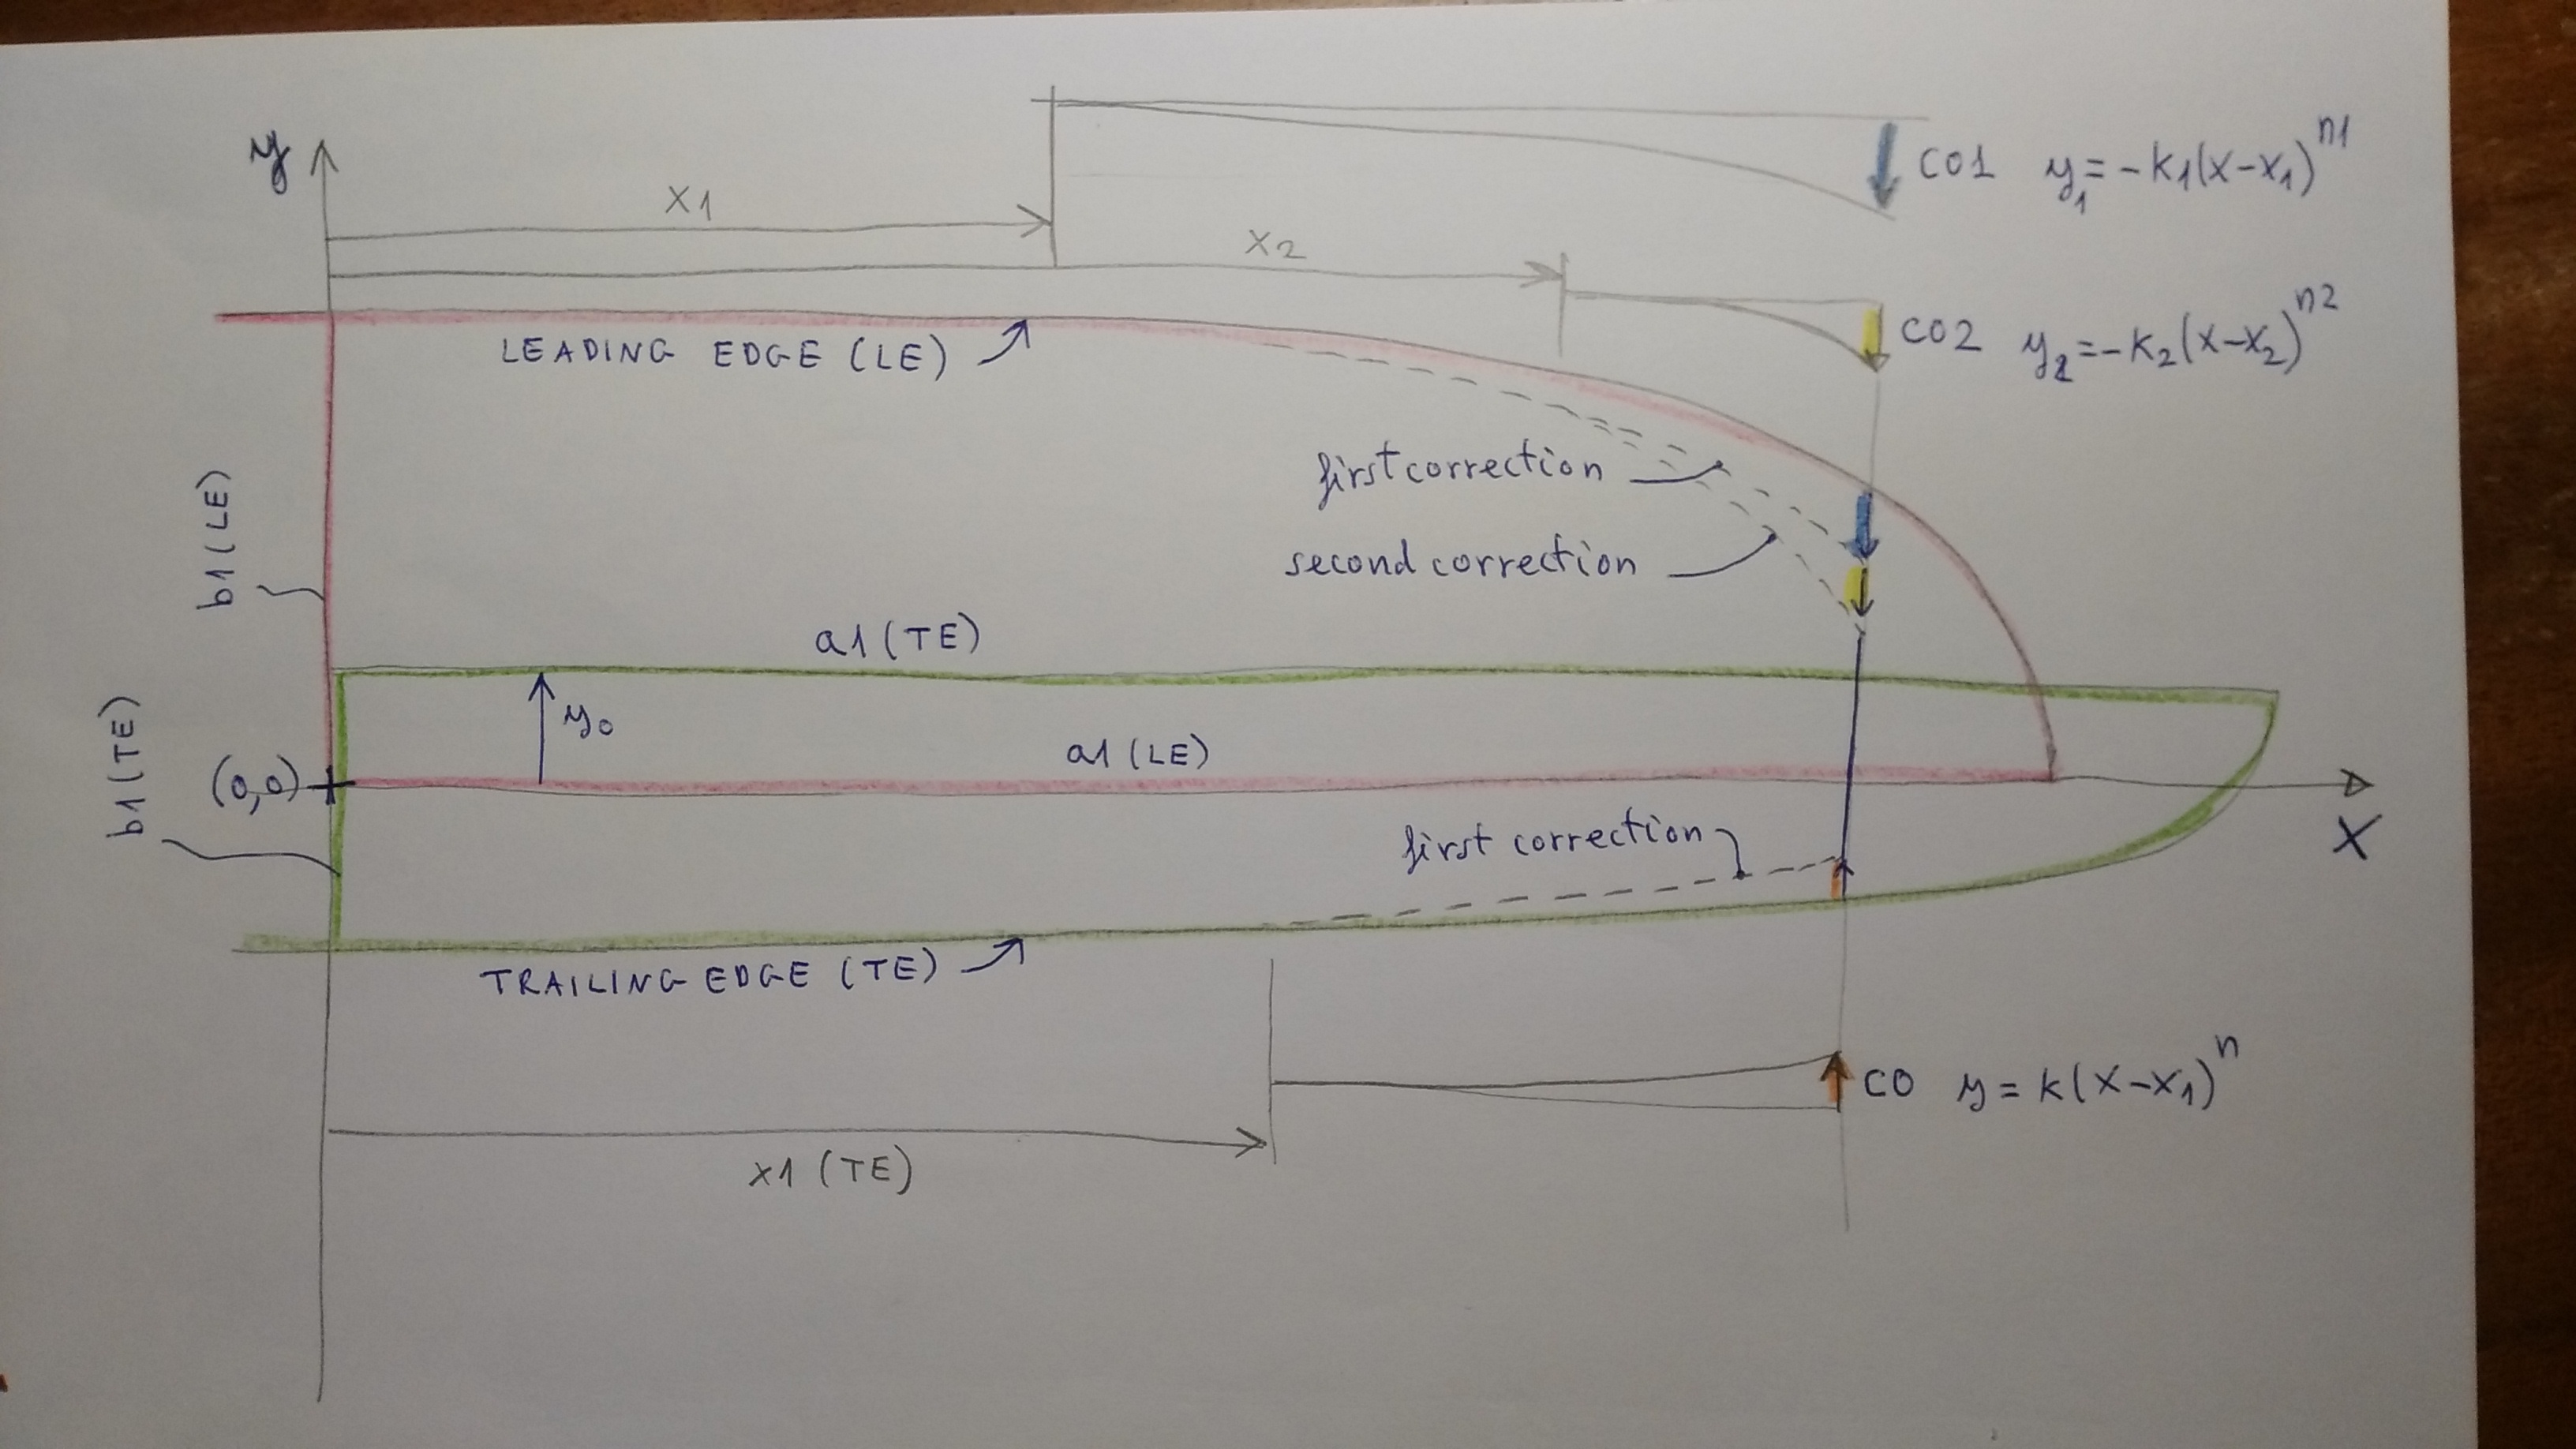 y
X1
CO1 y₁=-k₁(x-x₁)ⁿ¹
X2
CO2 y₂=-k₂(x-x₂)ⁿ²
LEADING EDGE (LE)
b1(LE)
first correction
second correction
a1(TE)
y₀
a1(LE)
(0,0)
b1(TE)
X
first correction
TRAILING EDGE (TE)
CO y=k(x-x₁)ⁿ
x1(TE)